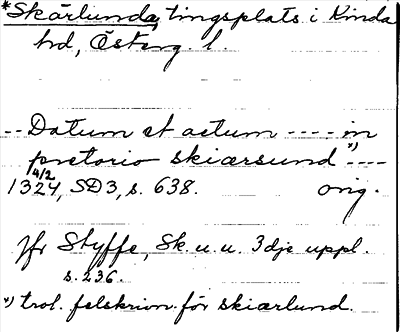 *Skärlunda, tingsplats i Kinda
hd, Österg. l.
-- Datum et actum ---- in
pretorio skiærsund *) ----
4/2
1324, SD3, s. 638. orig.
Jfr Styffe, Sk. u. u. 3dje uppl.
s. 236.
*) trol. felskrivn. för skiærlund.